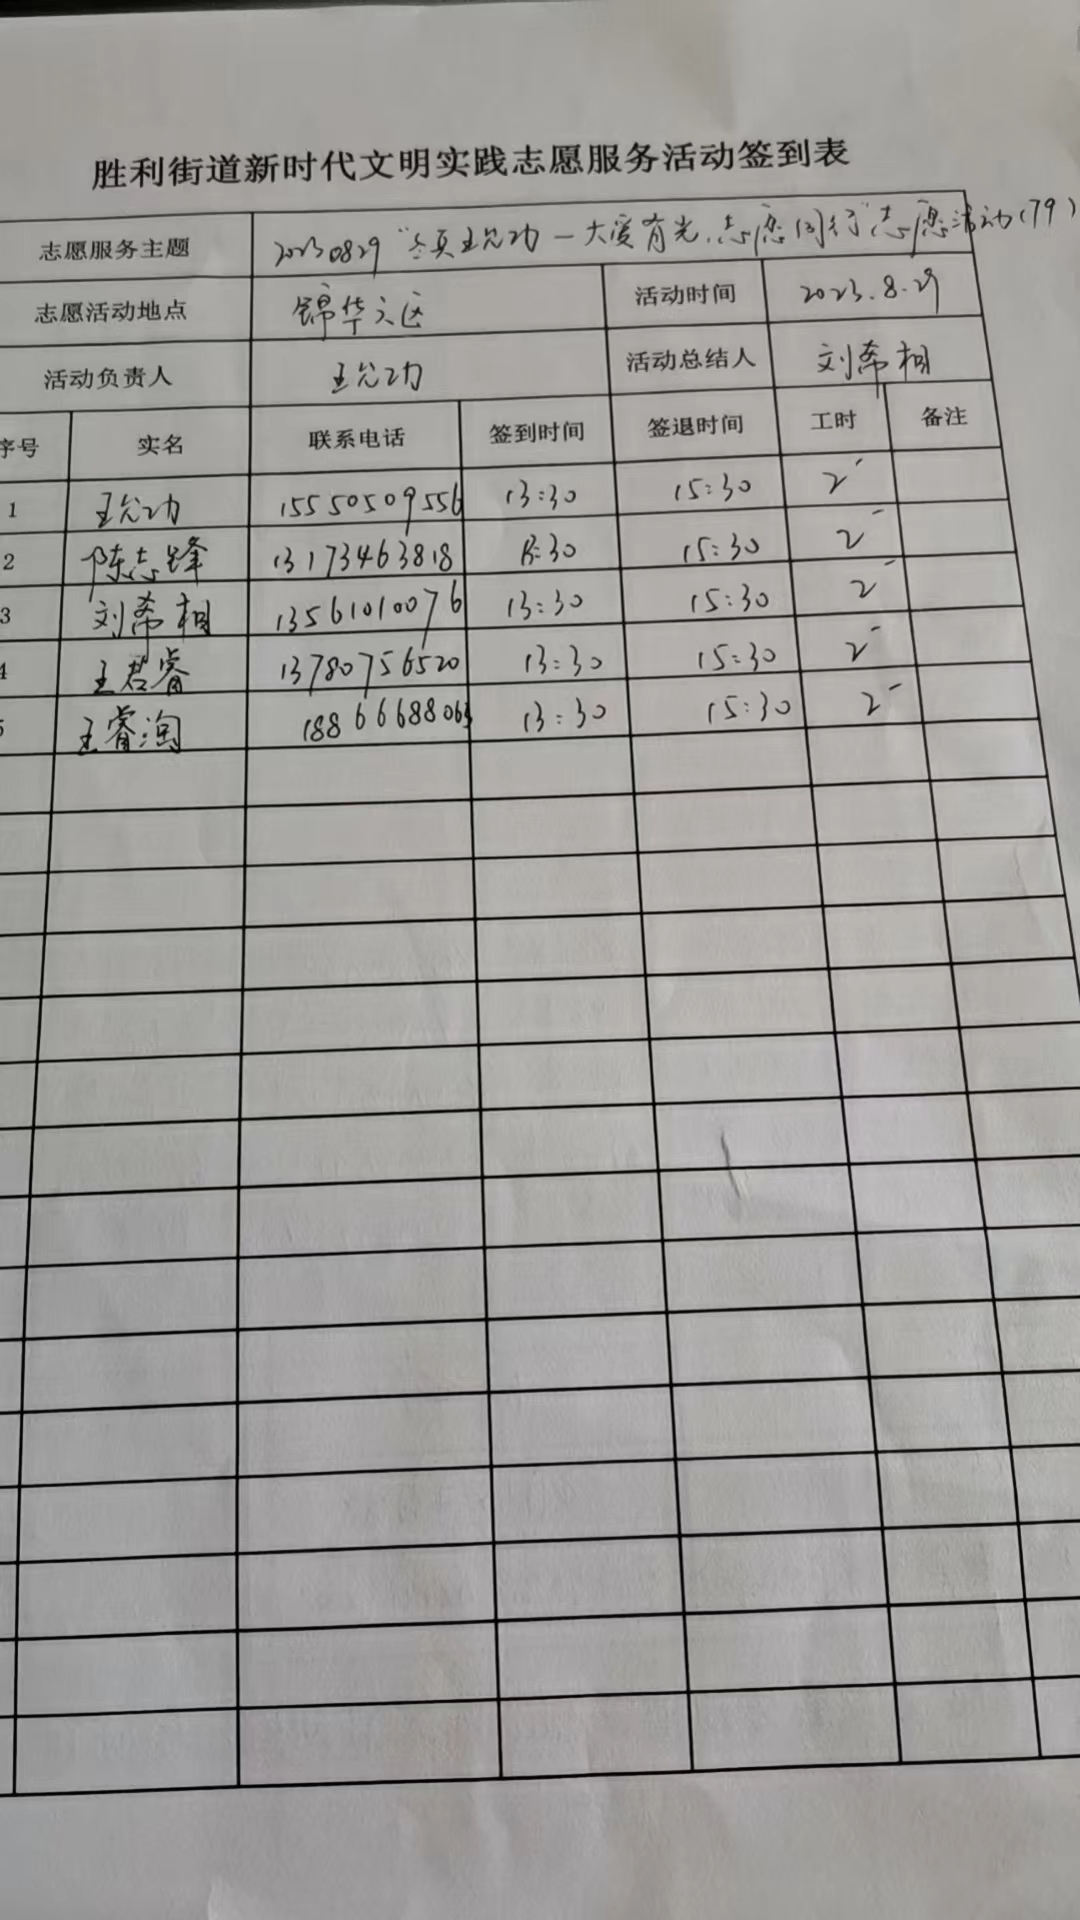 胜利街道新时代文明实践志愿服务活动签到表
志愿服务主题 20230829 "王允功一大爱有光,志愿同行"志愿活动(79)
志愿活动地点 锦华六区 活动时间 2023.8.29
活动负责人 王允功 活动总结人 刘希相
序号 实名 联系电话 签到时间 签退时间 工时 备注
1 王允功 15550509556 13:30 15:30 2
2 陈志锋 13173463818 13:30 15:30 2
3 刘希相 13561010076 13:30 15:30 2
4 王君睿 13780756520 13:30 15:30 2
5 王睿淘 18866688063 13:30 15:30 2